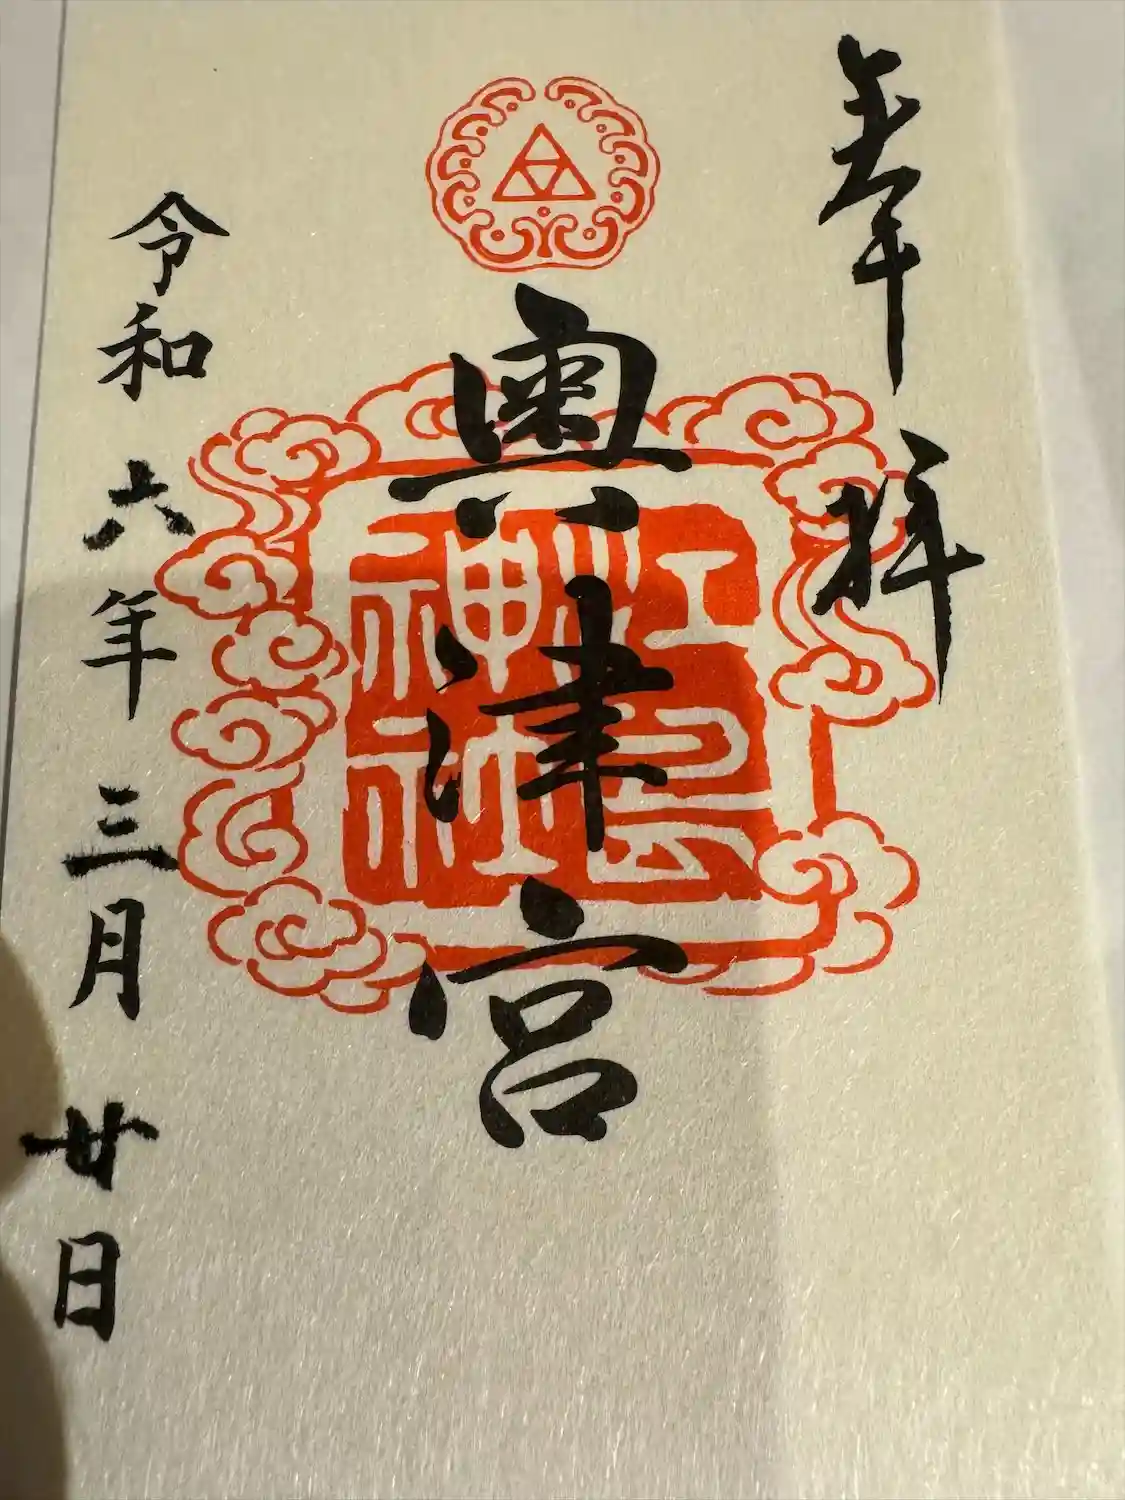 奉拝
奥津宮
江島
神社
令和六年三月廿日